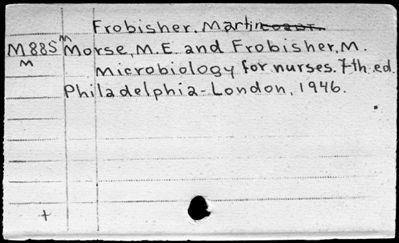 Frobisher, Martin
M88S m Morse, M.E. and Frobisher, M.
m Microbiology for nurses. 7th ed.
Philadelphia-London, 1946.
+